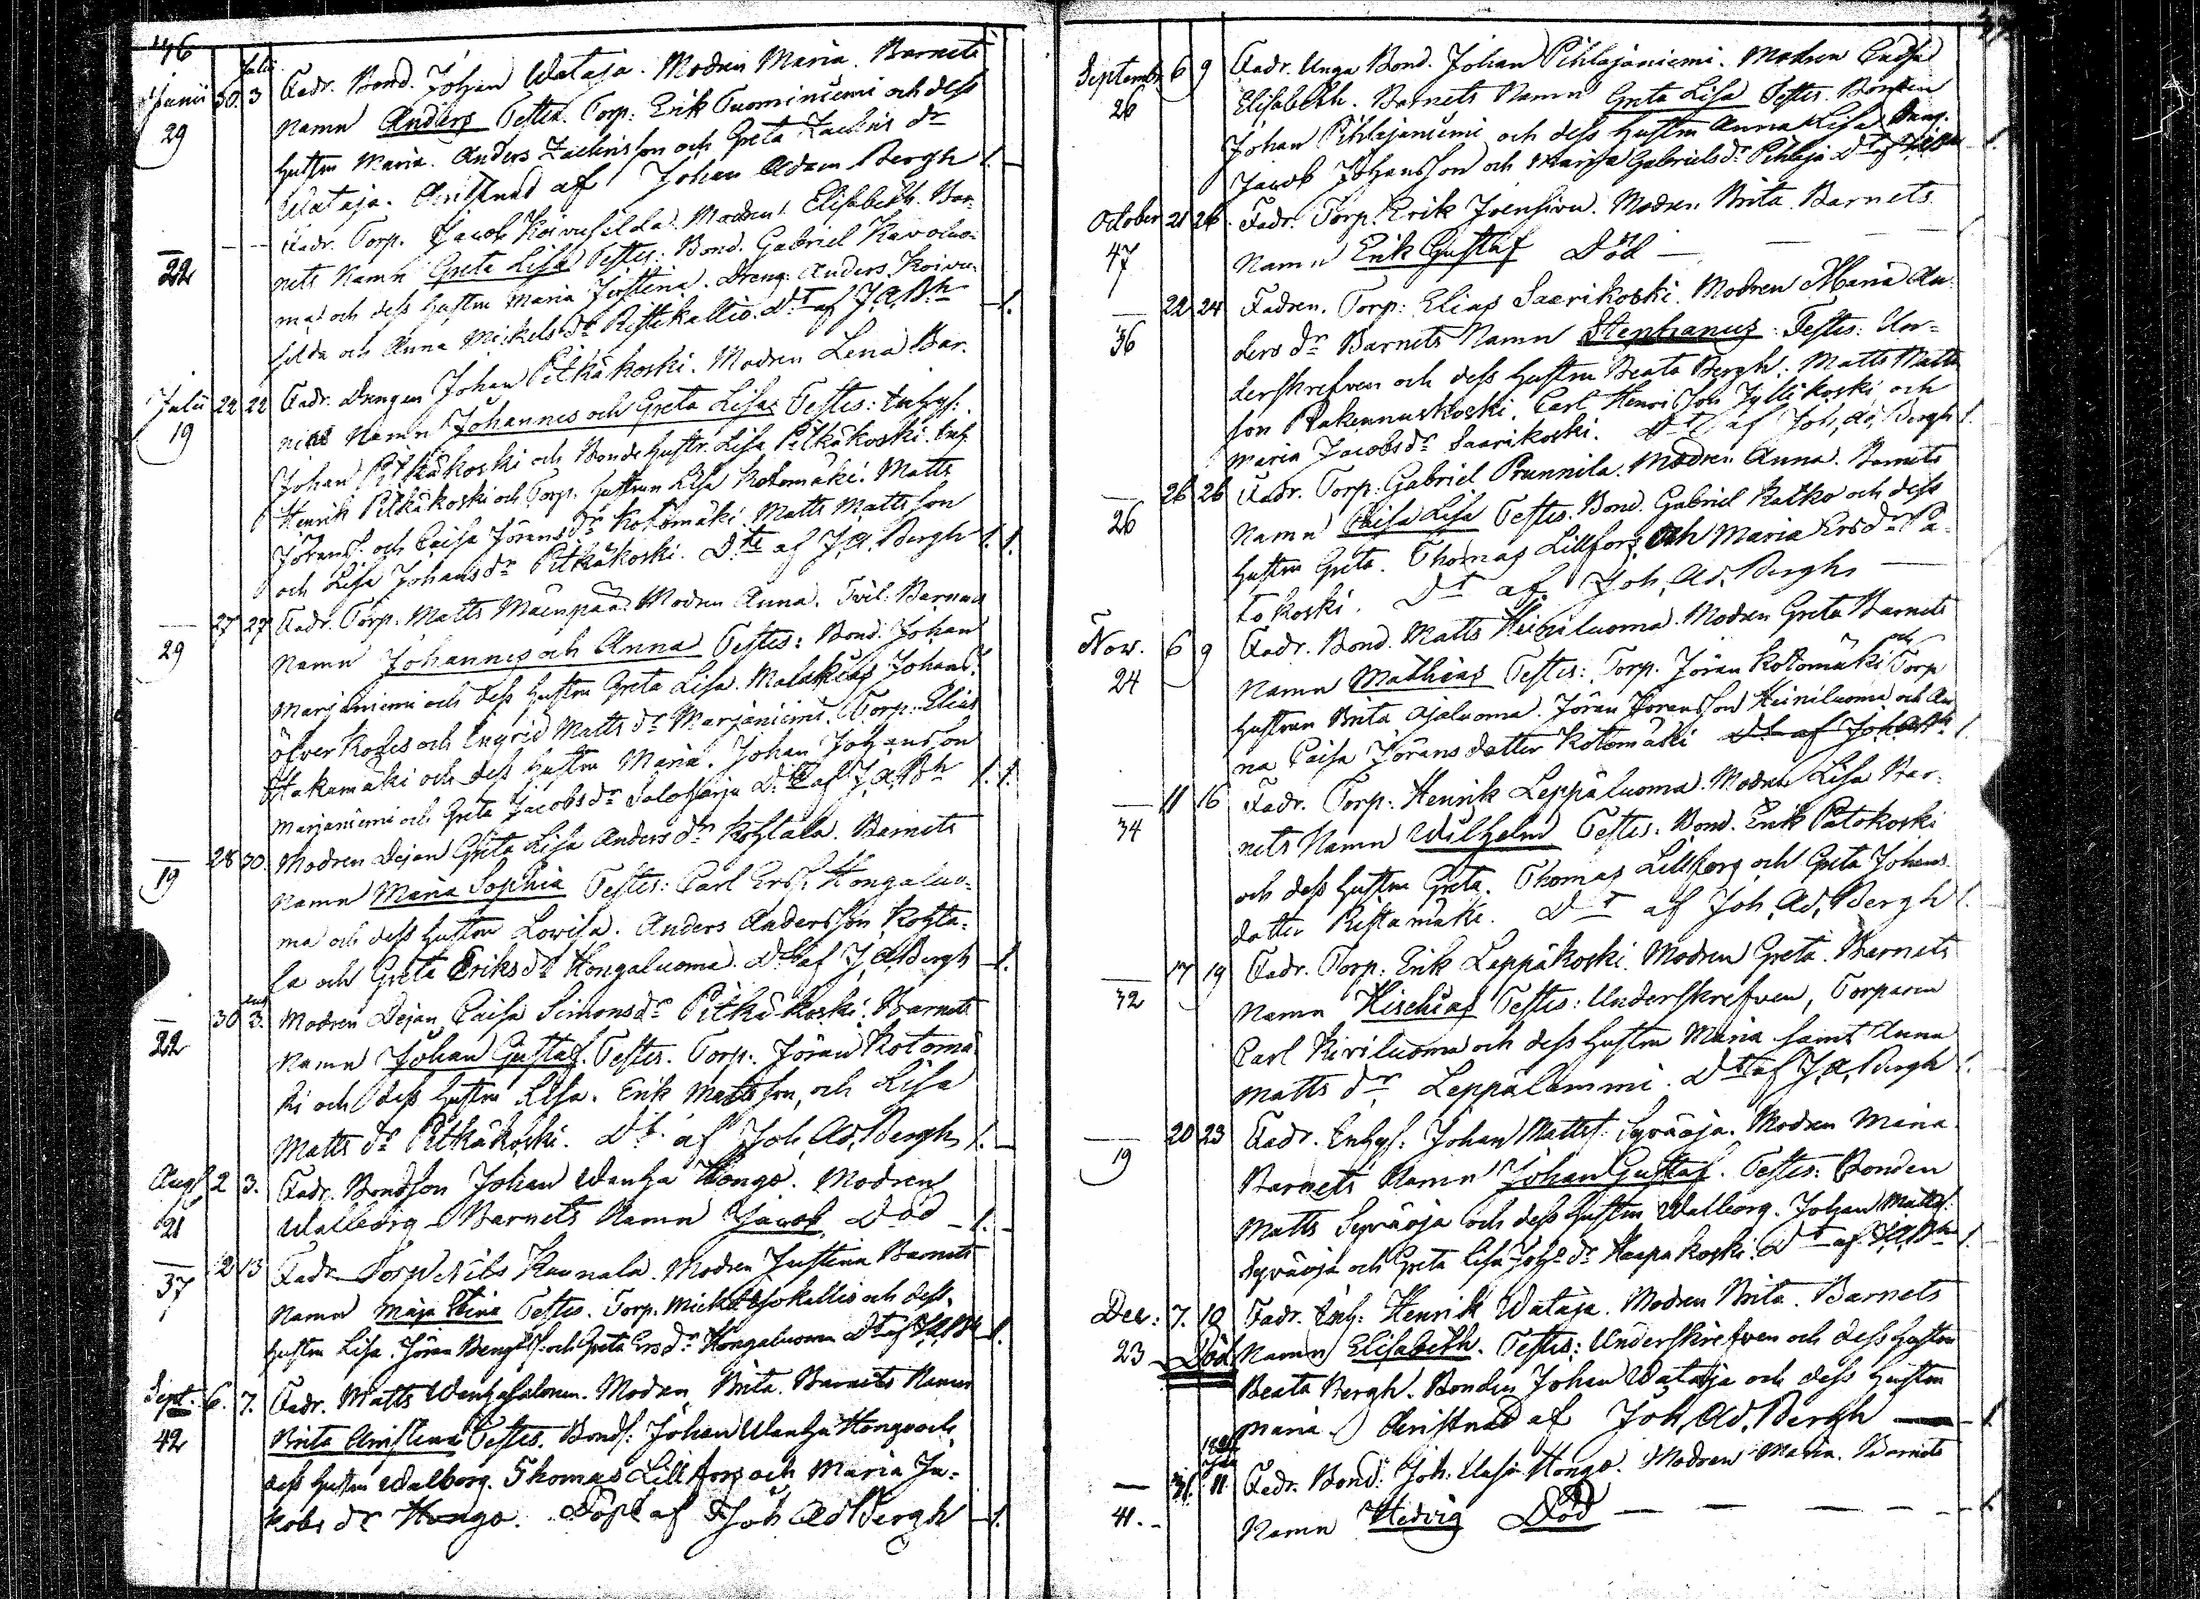 46
Julii
Junii 30. 3 Fadr. Bond. Johan Wataja. Modren Maria. Barnets
29 Namn Anders Testes. Torp: Erik Tuominiemi och dess
hustru Maria. Anders Zachrisson och Greta Zachris dr
Wataja. Christnad af Johan Adam Bergh
Fadr. Torp. Jacob Koivusilda. Modren Elisabeth. Bar-
22 nets Namn Greta Lisa Testes: Bond. Gabriel Karvoluo-
ma och dess hustru Maria Justina. Dreng: Anders Koivu-
silda och Anna Mickels dr Ristikallio. Dt af J. A. Bh
Julii 22 22 Fadr. Drengen Johan Pitkäkoski. Modren Lena Bar-
19 nens Namn Johannes och Greta Lisa: Testes: Inhys:
Johan Pitkäkoski och Bonde hustr. Lisa Pitkäkoski. Inh.
Henrik Pitkäkoski och Torp. hustrun Lisa Kotomäki. Matts
Jörans. och Caisa Jörans dr Kotomäki. Matts Mattsson
och Lisa Johans dr Pitkäkoski. Dt af J. A. Bergh
27 27 Fadr. Torp. Matts Mäenpää. Modren Anna. Tvil. Barnens
29 Namn Johannes och Anna Testes: Bond. Johan
Marjaniemi och dess hustru Greta Lisa. Malakias Johans.
öfver Kohes och Ingrid Matts dr Marjaniemi. Torp: Elias
Hakamäki och dess hustru Maria. Johan Johansson
Marjaniemi och Greta Jacobs dr Saloharju Dt af J. A. Bh
28 30. Modren Dejan Greta Lisa Anders dr Kohtala. Barnets
19 Namn Maria Sophia Testes: Carl Ers. Hongaluo-
ma och dess hustru Lovisa. Anders Andersson Kohta-
la och Greta Eriks dr Hongaluoma. Dt af J. A. Bergh
30 3. Modren Dejan Caisa Simons dr Pitkäkoski. Barnets
22 Namn Johan Gustaf. Testes. Torp. Jöran Kotomä-
ki och dess hustru Lisa. Erik Mattsson, och Lisa
Matts dr Pitkäkoski. Dt af Joh. Ad. Bergh
Aug. 2 3. Fadr. Bondson Johan Wanha Hongo. Modren
21 Walborg. Barnets Namn Jacob. Död
12 13 Fadr. Torp Nils Kaunala. Modren Justina Barnets
37 Namn Maja Stina Testes. Torp. Mickel Isokallio och dess
hustru Lisa. Jöran Bengts. och Greta Ers dr Hongaluoma Dt af J. A. Bh
Sept. 6. 7. Fadr. Matts Wanhasalonen. Modren Brita. Barnets Namn
42 Brita Christina Testes. Bonds: Johan Wanha Hongo och
dess hustru Walborg. Thomas Lillfors och Maria Ja-
kobs dr Hongo. Döpt af Joh. Ad Bergh
Septembr. 6 9 Fadr. Unga Bond. Johan Pihlajaniemi. Modren Cadsa
26 Elisabeth. Barnets Namn Greta Lisa Testes. Bonden
Johan Pihlajaniemi och dess hustru Anna Lisa. Dreng.
Jacob Johansson och Marja Gabriels dr Pihlaja Dt af J. A. Bh
October 21 26. Fadr. Torp. Erik Joensivu. Modren Brita. Barnets
47 Namn Erik Gustaf Död
22 24 Fadren. Torp: Elias Saarikoski. Modren Maria An-
36 ders dr Barnets Namn Stephanus: Testes: Un-
derskrefven och dess hustru Beata Bergh. Matts Matts
son Rakennuskoski. Carl Henri Joh. Jyllikoski och
Maria Jacobs dr Saarikoski. Dt af Joh. Ad. Bergh
26 26 Fadr. Torp. Gabriel Prunnila. Modren Anna. Barnets
26 Namn Caisa Lisa Testes. Bond. Gabriel Ratko och dess
hustru Greta. Thomas Lillfors och Maria Ers dr Pa-
tokoski. Dt af Joh. Ad. Bergh
Nov. 6 9 Fadr. Bond. Matts Heiniluoma. Modren Greta Barnets
24 Namn Mathias Testes: Torp. Jöran Kotomäki och Torp
hustrun Brita Ojaluoma. Jöran Joransson Heiniluoma och An-
na Caisa Jörans dotter Kotomäki Dt af Joh. A. Bh
11 16 Fadr. Torp: Henrik Leppäluoma. Modren Lisa Bar-
34 nets Namn Wilhelm Testes: Bond. Erik Patokoski
och dess hustru Greta. Thomas Lillfors och Greta Johans
dotter Ristamäki. Dt af Joh. Ad. Bergh
17 19 Fadr. Torp: Erik Leppäkoski. Modren Greta. Barnets
32 Namn Hiskias Testes: Underskrefven, Torparen
Carl Kiviluoma och dess hustru Maria samt Anna
Matts dr Leppälammi. Dt af J. A. Bergh
20 23 Fadr. Inhys. Johan Matts. Syväoja. Modren Maria.
19 Barnets Namn Johan Gustaf. Testes: Bonden
Matts Syväoja och dess hustru Walborg. Johan Matts.
Syväoja och Greta Lisa Johs dr Haapakoski. Dt af J. A. Bh
Dec: 7. 10 Fadr. Inh: Henrik Wataja. Modren Brita. Barnets
23 Död Namn Elisabeth. Testes: Underskrefven och dess hustru
Beata Bergh. Bonden Johan Wataja och dess hustru
Maria. Christnad af Joh. Ad. Bergh
31. 11 Fadr. Bond: Joh. Uusi Hongo. Modren Maria. Barnets
41. Namn Hedvig Död